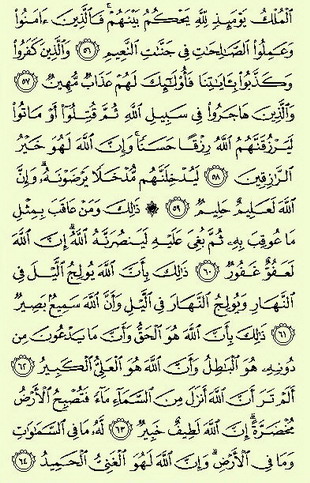 ٱلْمُلْكُ يَوْمَئِذٍ لِّلَّهِ يَحْكُمُ بَيْنَهُمْ ۚ فَٱلَّذِينَ ءَامَنُوا۟
وَعَمِلُوا۟ ٱلصَّٰلِحَٰتِ فِى جَنَّٰتِ ٱلنَّعِيمِ ٥٦ وَٱلَّذِينَ كَفَرُوا۟
وَكَذَّبُوا۟ بِـَٔايَٰتِنَا فَأُو۟لَٰٓئِكَ لَهُمْ عَذَابٌ مُّهِينٌ ٥٧
وَٱلَّذِينَ هَاجَرُوا۟ فِى سَبِيلِ ٱللَّهِ ثُمَّ قُتِلُوٓا۟ أَوْ مَاتُوا۟
لَيَرْزُقَنَّهُمُ ٱللَّهُ رِزْقًا حَسَنًا ۚ وَإِنَّ ٱللَّهَ لَهُوَ خَيْرُ
ٱلرَّٰزِقِينَ ٥٨ لَيُدْخِلَنَّهُم مُّدْخَلًا يَرْضَوْنَهُۥ ۗ وَإِنَّ
ٱللَّهَ لَعَلِيمٌ حَلِيمٌ ٥٩ ۞ ذَٰلِكَ وَمَنْ عَاقَبَ بِمِثْلِ
مَا عُوقِبَ بِهِۦ ثُمَّ بُغِىَ عَلَيْهِ لَيَنصُرَنَّهُ ٱللَّهُ ۗ إِنَّ ٱللَّهَ
لَعَفُوٌّ غَفُورٌ ٦٠ ذَٰلِكَ بِأَنَّ ٱللَّهَ يُولِجُ ٱلَّيْلَ فِى
ٱلنَّهَارِ وَيُولِجُ ٱلنَّهَارَ فِى ٱلَّيْلِ وَأَنَّ ٱللَّهَ سَمِيعٌۢ بَصِيرٌ
٦١ ذَٰلِكَ بِأَنَّ ٱللَّهَ هُوَ ٱلْحَقُّ وَأَنَّ مَا يَدْعُونَ مِن
دُونِهِۦ هُوَ ٱلْبَٰطِلُ وَأَنَّ ٱللَّهَ هُوَ ٱلْعَلِىُّ ٱلْكَبِيرُ ٦٢
أَلَمْ تَرَ أَنَّ ٱللَّهَ أَنزَلَ مِنَ ٱلسَّمَآءِ مَآءً فَتُصْبِحُ ٱلْأَرْضُ
مُخْضَرَّةً ۗ إِنَّ ٱللَّهَ لَطِيفٌ خَبِيرٌ ٦٣ لَّهُۥ مَا فِى ٱلسَّمَٰوَٰتِ
وَمَا فِى ٱلْأَرْضِ ۗ وَإِنَّ ٱللَّهَ لَهُوَ ٱلْغَنِىُّ ٱلْحَمِيدُ ٦٤